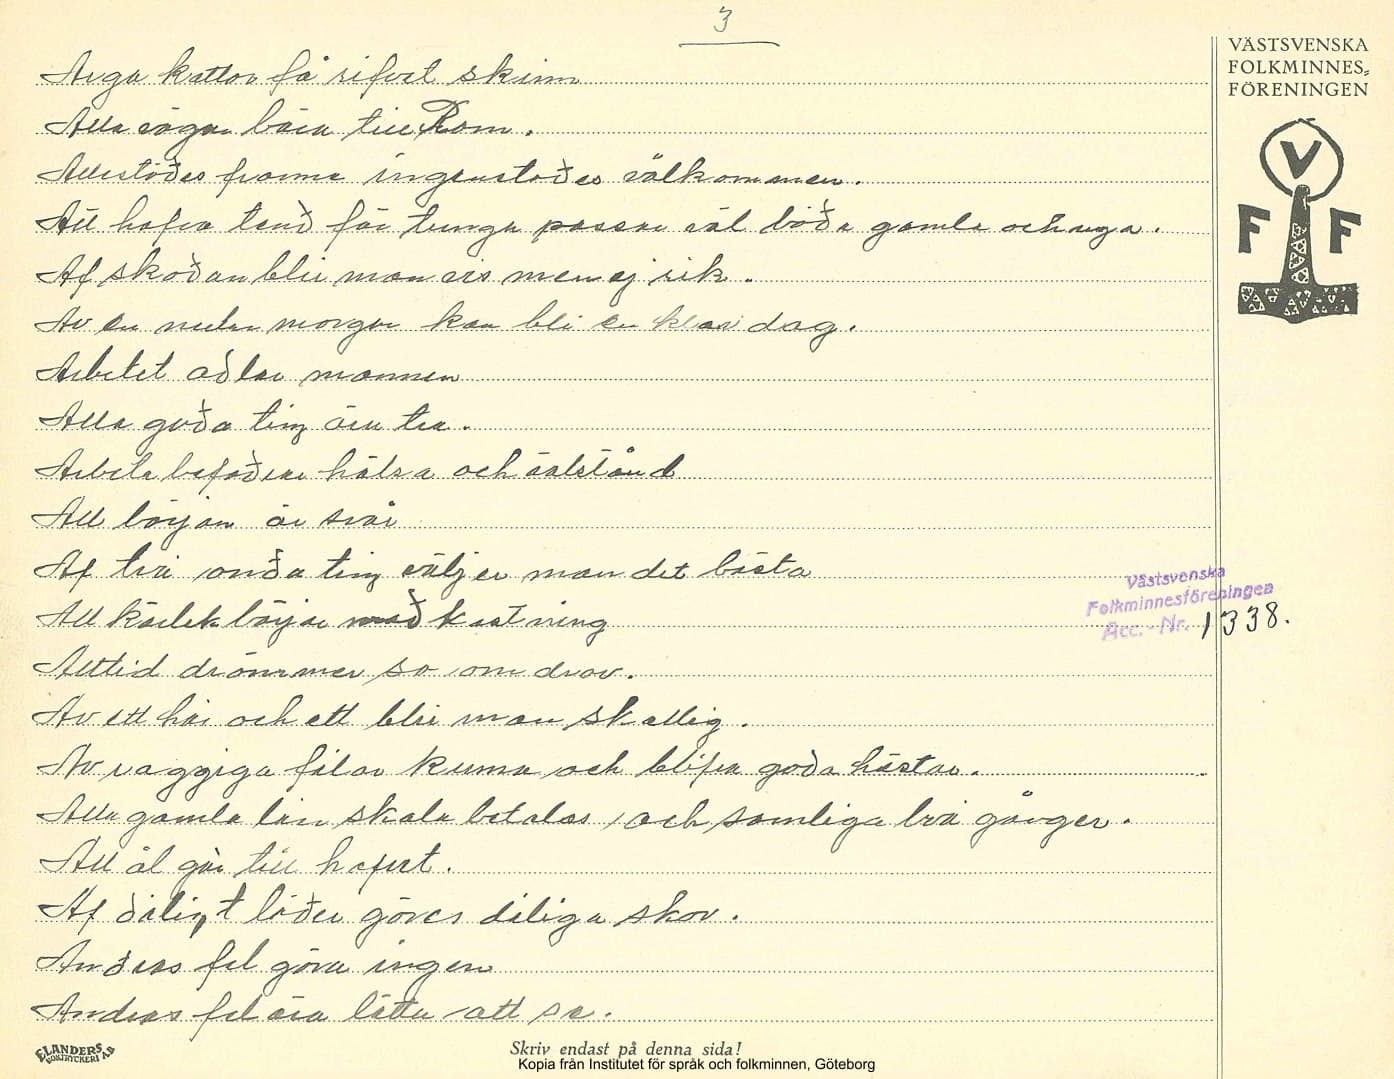 3
VÄSTSVENSKA
FOLKMINNES=
FÖRENINGEN
V
F F
Arga kattor få rifvet skinn
Alla vägar bära till Rom.
Allestädes framme ingenstädes välkommen.
Att hafva tand för tunga passar väl båda gamla och unga.
Af skadan blir man vis men ej rik.
Av en mulen morgon kan bli en klar dag.
Arbetet adlar mannen
Alla goda ting äro tre.
Arbete befodrar hälsa och välstånd
All början är svår
Af två onda ting väljer man det bästa
All kärlek börjar med kastning
Alltid drömmer so om drav.
Av ett hår och ett blir man skallig.
Av raggiga fålar kunna och blifva goda hästar.
Alla gamla lån skola betalas, och somliga två gånger.
All ål går till hafvet.
Af dåligt läder göres dåliga skor.
Andras fel göra ingen
Andras fel äro lätta att se.
Västsvenska
Folkminnesföreningen
Acc. - Nr. 1338.
ELANDERS
BOKTRYCKERI A.B
Skriv endast på denna sida!
Kopia från Institutet för språk och folkminnen, Göteborg